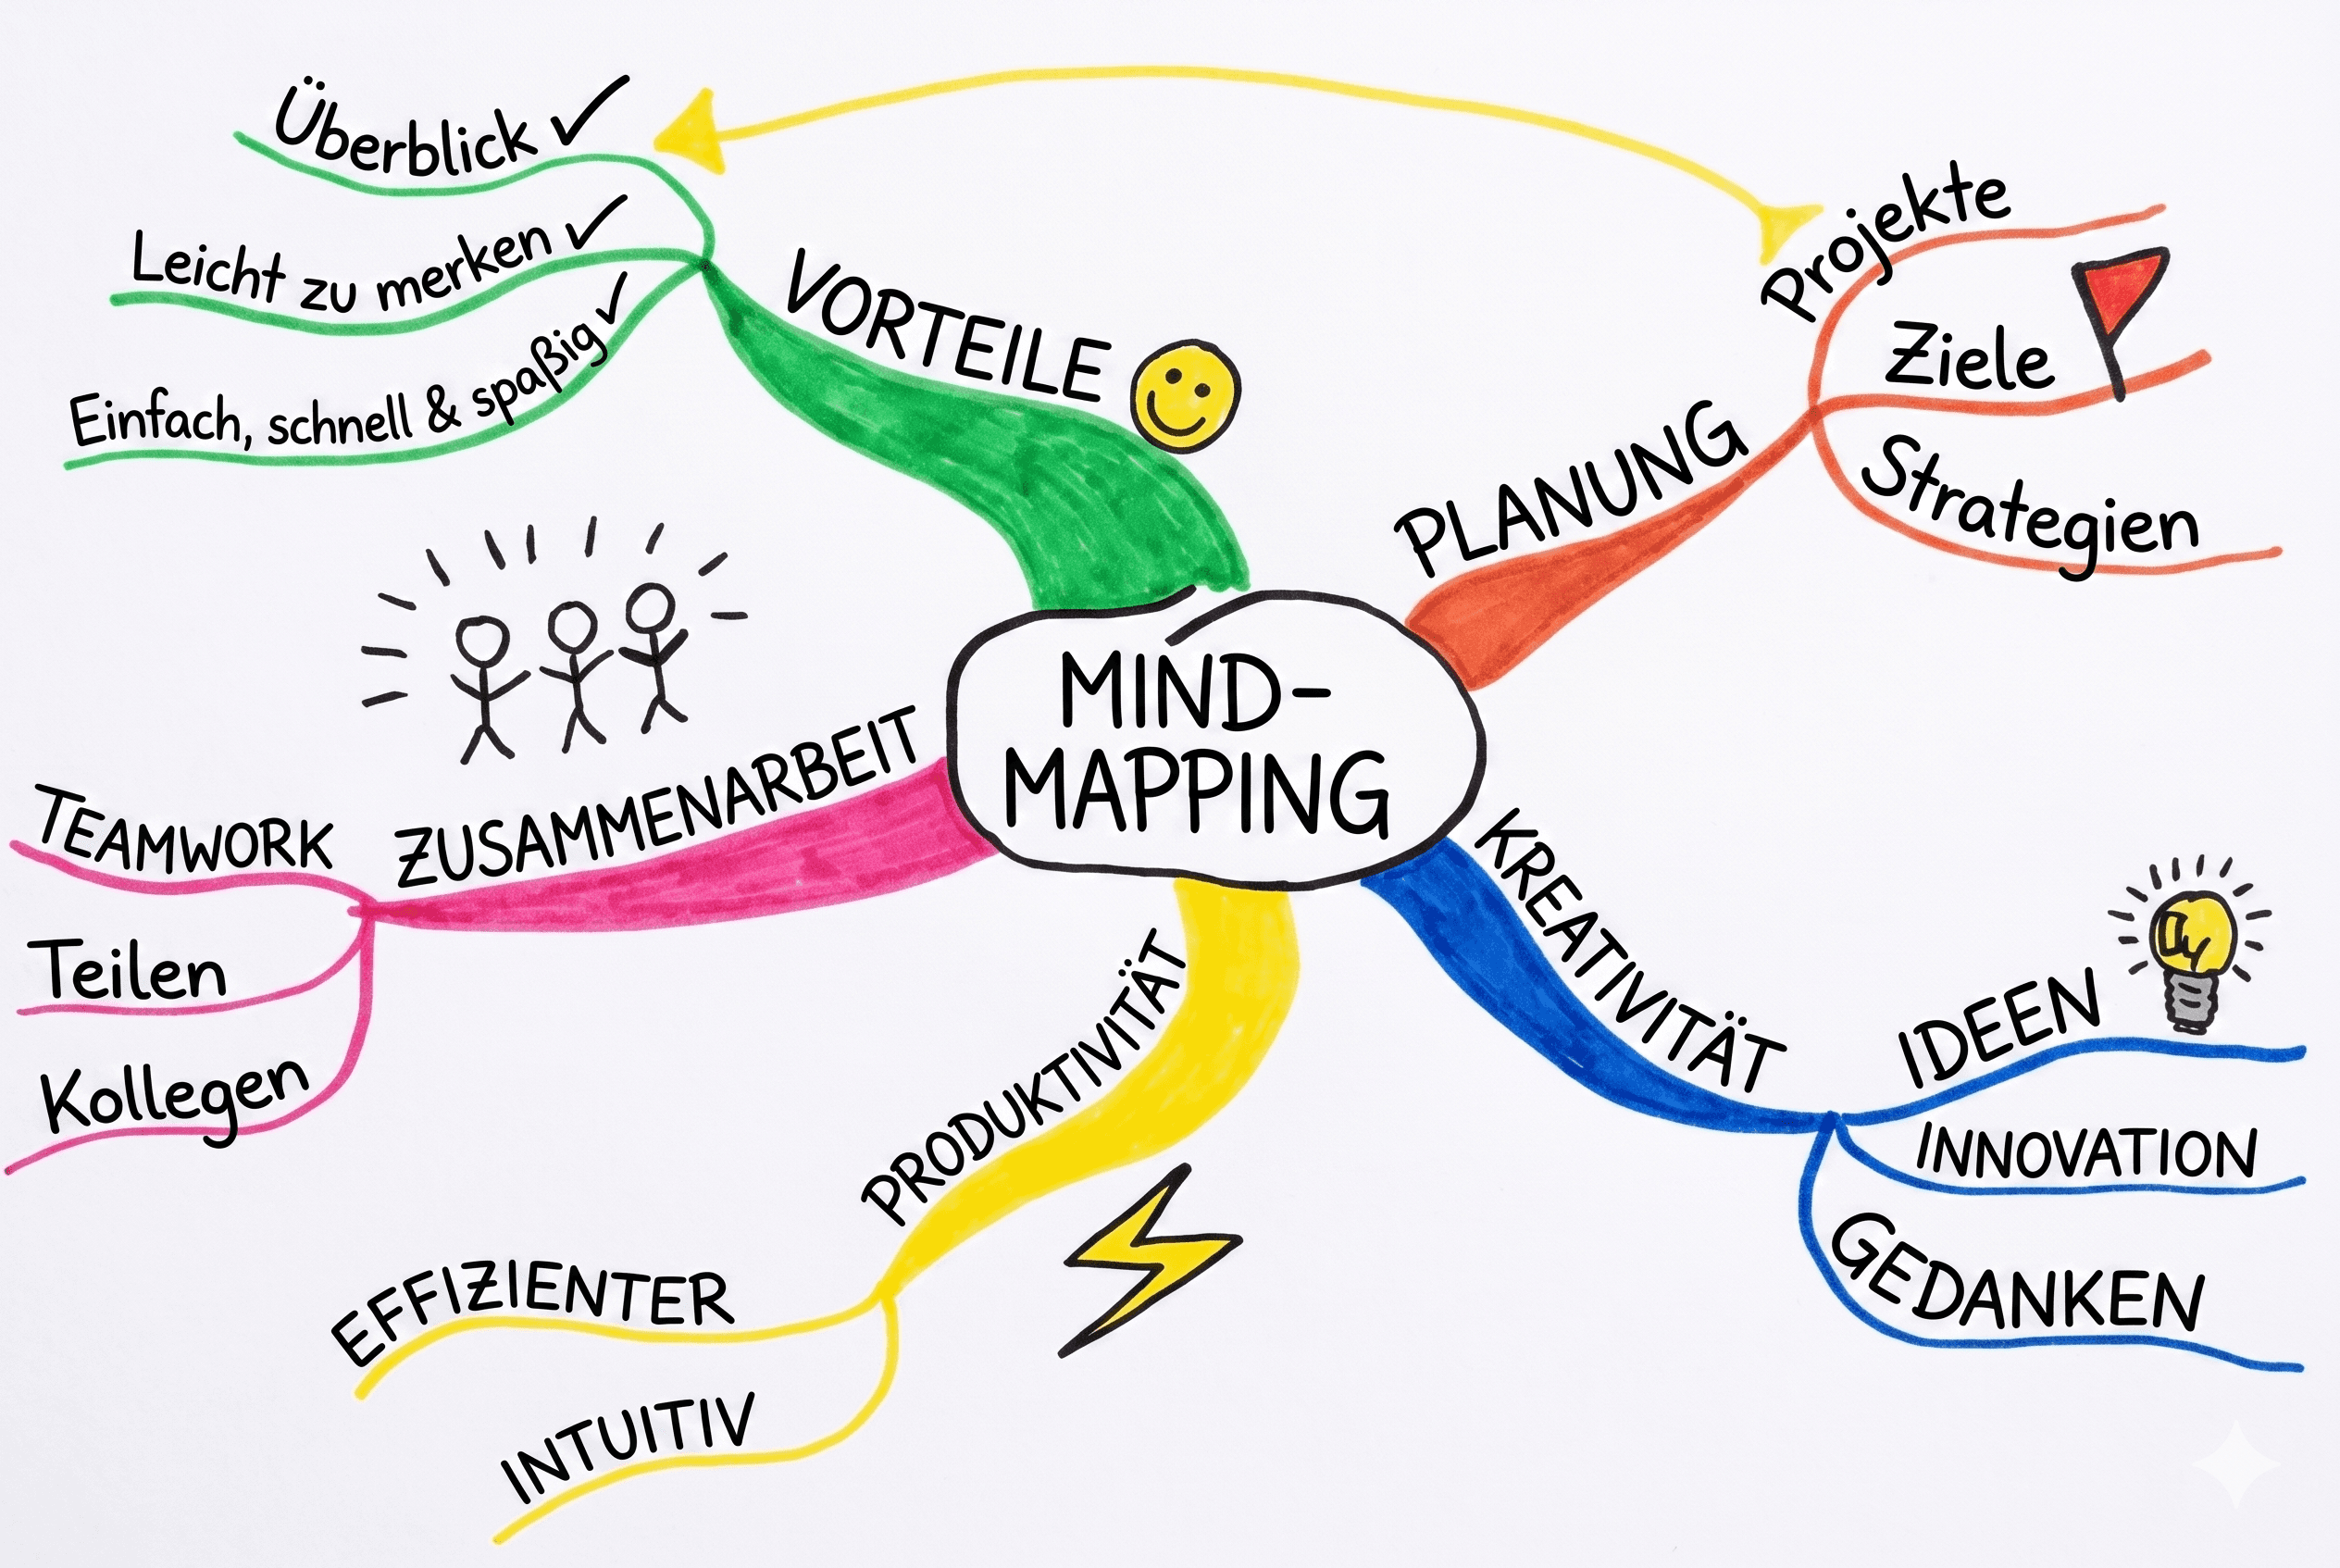 MIND-
MAPPING
VORTEILE
Überblick ✓
Leicht zu merken ✓
Einfach, schnell & spaßig ✓
PLANUNG
Projekte
Ziele
Strategien
ZUSAMMENARBEIT
TEAMWORK
Teilen
Kollegen
PRODUKTIVITÄT
EFFIZIENTER
INTUITIV
KREATIVITÄT
IDEEN
INNOVATION
GEDANKEN